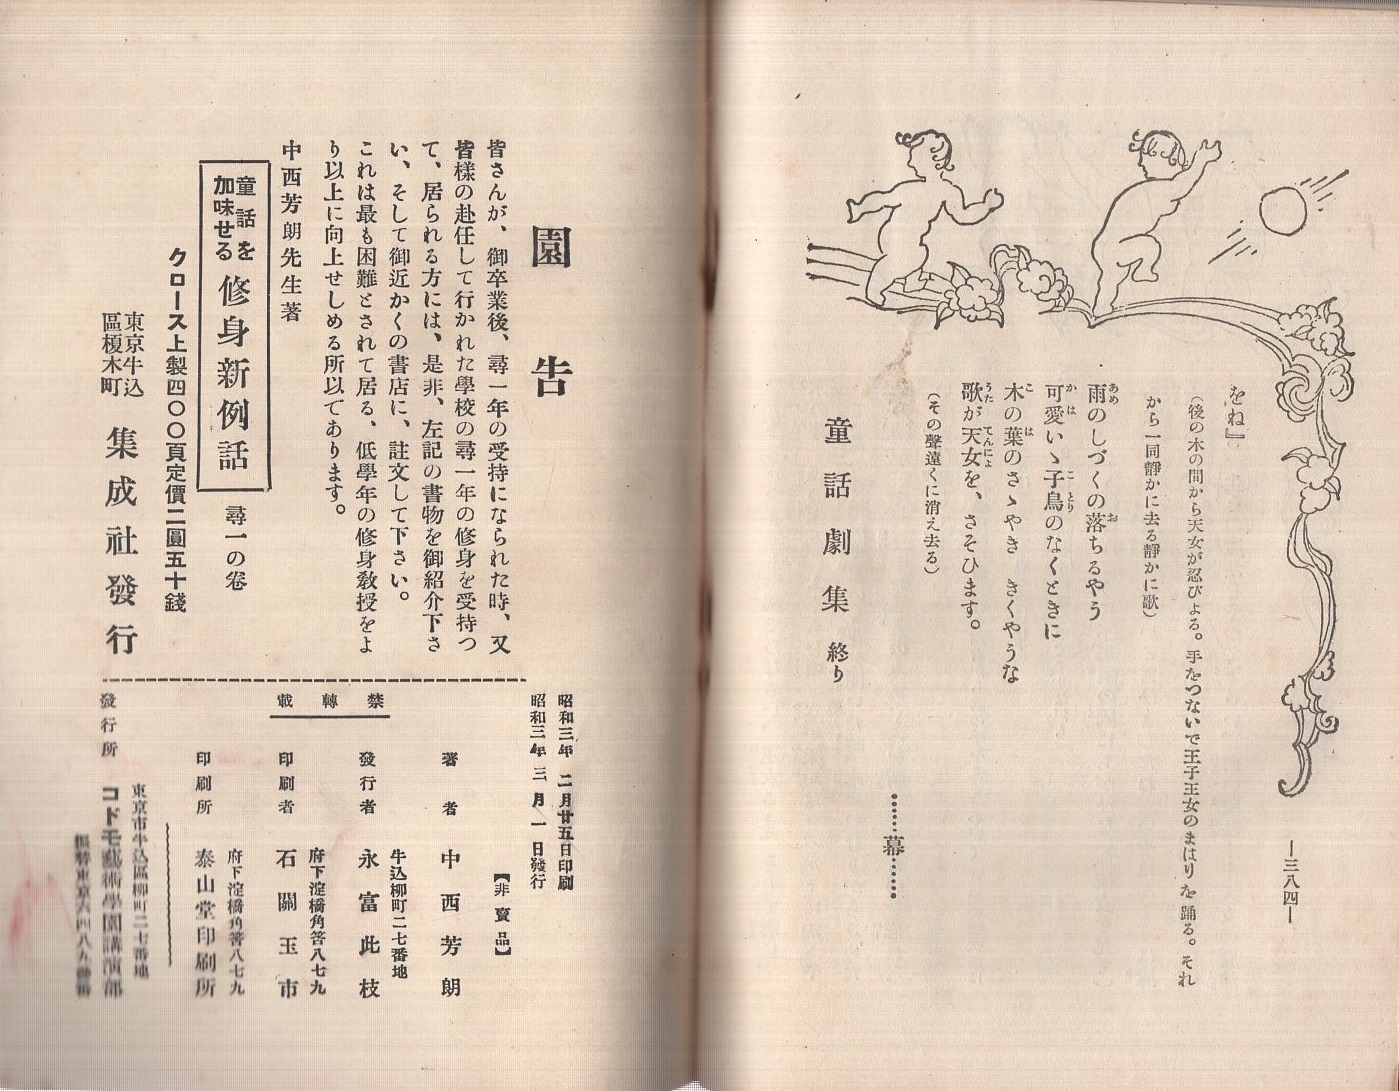 ―三八四―
をね』
（後の木の間から天女が忍びよる。手をつないで王子王女のまはりを踊る。それ
から一同靜かに去る靜かに歌）
雨のしづくの落ちるやう
可愛いゝ子鳥のなくときに
木の葉のさゝやき　きくやうな
歌が天女を、さそひます。
（その聲遠くに消え去る）
……幕……
童話劇集　終り
園告
皆さんが、御卒業後、尋一年の受持になられた時、又
皆樣の赴任して行かれた學校の尋一年の修身を受持つ
て、居られる方には、是非、左記の書物を御紹介下さ
い、そして御近かくの書店に、註文して下さい。
これは最も困難とされて居る、低學年の修身敎授をよ
り以上に向上せしめる所以であります。
中西芳朗先生著
童話を
加味せる
修身新例話
尋一の卷
クロース上製四〇〇頁定價二圓五十錢
東京牛込
區榎木町
集成社發行
昭和三年　二月廿五日印刷
昭和三年　三月一日發行
【非賣品】
著者　中西芳朗
牛込柳町二七番地
發行者　永富此枝
禁轉載
府下淀橋角筈八七九
印刷者　石關玉市
府下淀橋角筈八七九
印刷所　泰山堂印刷所
東京市牛込區柳町二七番地
發行所　コドモ藝術學園講演部
振替東京六四八九番